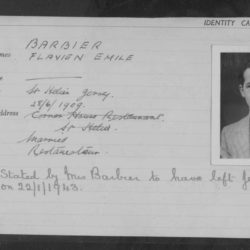 IDENTITY CA
BARBIER
FLAVIEN EMILE
St Helier Jersey
28/4/1909.
Corner House Restaurant
St Helier
Married
Restaurateur
Stated by Mrs Barbier to have left Je
on 22/1/1943.